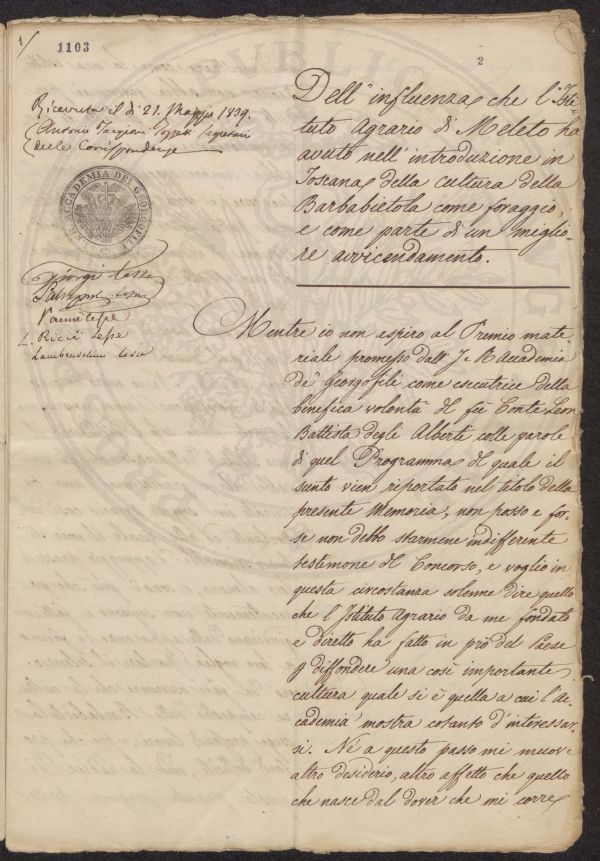 1/
1103
2
Ricevuta il dì 21. Maggio 1839.
Antonio Targioni Tozzetti Segretario
delle Corrispondenze
ACCADEMIA DEI GEORGOFILI
lesse
Vanni lesse
L. Ricci lesse
Lambruschini lesse
Dell'influenza che l'Isti=
tuto Agrario di Meleto ha
avuto nell'introduzione in
Toscana della cultura della
Barbabietola come foraggio,
e come parte di un miglio=
re avvicendamento.
Mentre io non aspiro al Premio mate
riale promesso dall'I e R Accademia
de' Georgofili come esecutrice della
benefica volontà del fù Conte Leon
Battista degli Alberti colle parole
di quel Programma del quale il
sunto vien riportato nel titolo della
presente Memoria, non posso e for=
se non debbo starmene indifferente
testimone del Concorso, e voglio in
questa circostanza solenne dire quello
che l'Istituto Agrario da me fondato
e diretto ha fatto in prò del Paese
p diffondere una così importante
cultura quale si è quella a cui l'Ac
cademia mostra cotanto d'interessar
si. Nè a questo passo mi muove
altro desiderio, altro affetto che quello
che nasce dal dover che mi corre